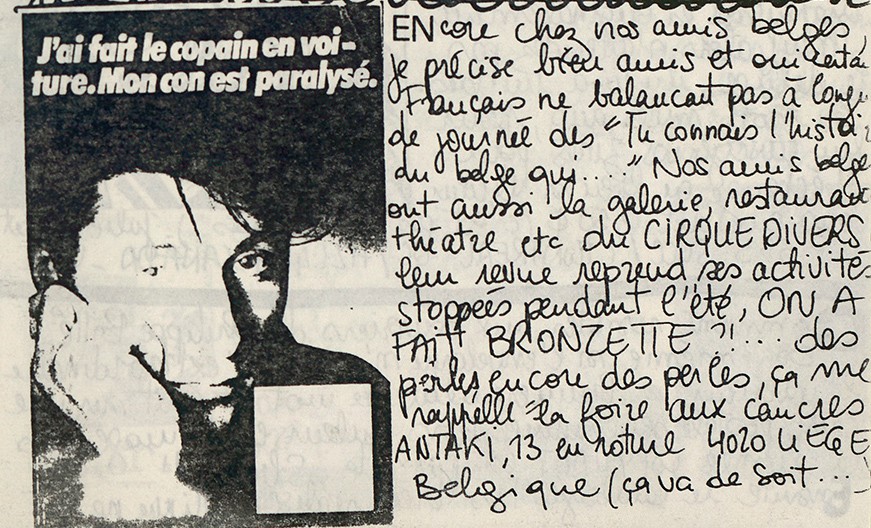 J'ai fait le copain en voi-
ture. Mon con est paralysé.
ENcore chez nos amis belges,
je précise bien amis et oui
Français ne balancait pas à longu
de journée des "Tu connais l'histoi
du belge qui....." Nos amis belge
ont aussi la galerie, restauran
théatre etc du CIRQUE DIVERS
leur revue reprend ses activités
stoppées pendant l'été, ON A
FAIT BRONZETTE ?!.... des
perles encore des perles, ça me
rappelle la foire aux cancres
ANTAKI, 13 en roture 4020 LIEGE
Belgique (ça va de soit....)